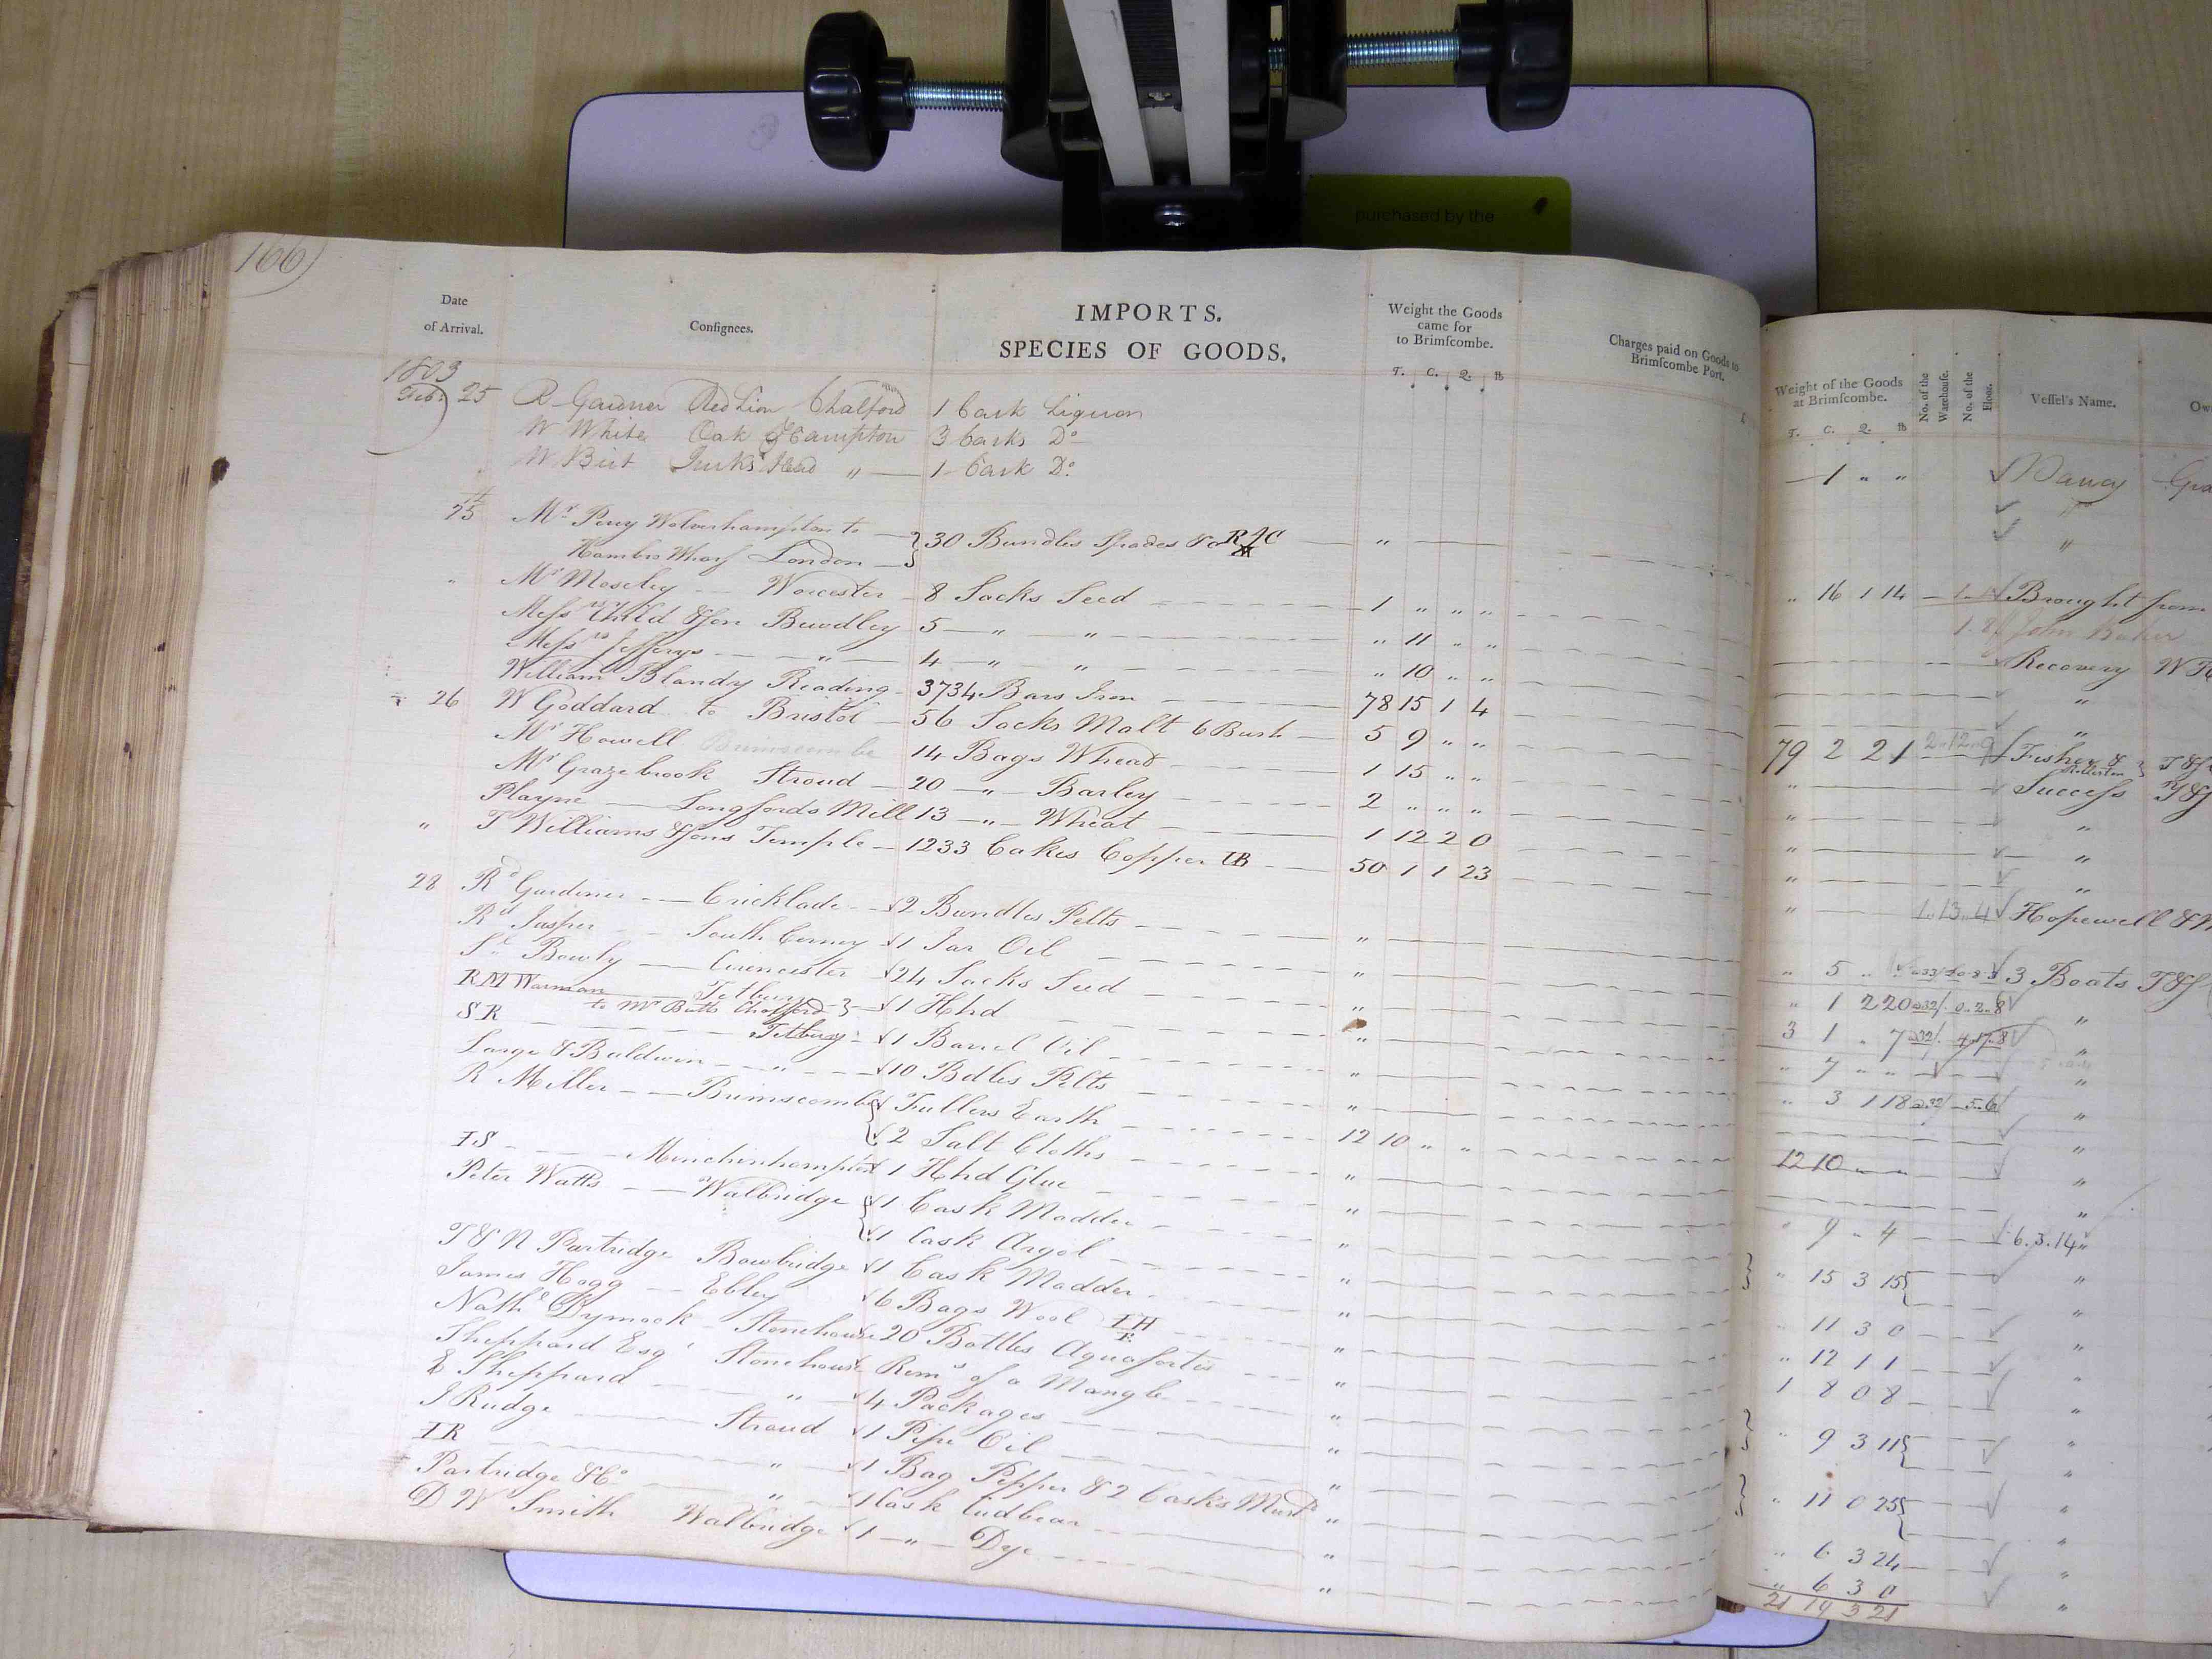 purchased by the
166
Date of Arrival.
Consignees.
IMPORTS.
SPECIES OF GOODS.
Weight the Goods came for to Brimscombe.
T. C. Q. lb
Charges paid on Goods to Brimscombe Port.
£
Weight of the Goods at Brimscombe.
T. C. Q. lb
No. of the Warehouse.
No. of the Floor.
Vessel's Name.
1803
Feby 25 R Gardner Red Lion Chalford 1 Cask Liquor
W White Oak Hampton 3 Casks Do
W Birt Turks Head " 1 Cask Do
25 Mr Perry Wolverhampton to
Hambro Wharf London 30 Bundles Spades &c "
" Mr Moseley Worcester 8 Sacks Seed 1 " " "
Messrs Child & Son Bewdley 5 " " " 11 " "
Messrs Jefferys " 4 " " " 10 " "
William Blandy Reading 3734 Bars Iron 78 15 1 4
26 W Goddard to Bristol 56 Sacks Malt 6 Bush 5 9 " "
Mr Howell Brimscombe 14 Bags Wheat 1 15 " "
Mr Grazebrook Stroud 20 " Barley 2 " " "
Playne Longfords Mill 13 " Wheat 1 12 2 0
" T Williams & Sons Temple 1233 Cakes Copper 50 1 1 23
28 Rd Gardiner Cricklade 2 Bundles Pelts "
Rd Jasper South Cerney 1 Jar Oil "
Bowly Cirencester 24 Sacks Seed "
RM Warman Tetbury
to Mr Butts Chalford 1 Hhd "
SR Tetbury 1 Barrel Oil "
Large & Baldwin " 10 Bdles Pelts "
R Miller Brimscombe Fullers Earth 12 10 " "
2 Salt Cloths "
IS Minchinhampton 1 Hhd Glue "
Peter Watts Walbridge 1 Cask Madder "
1 Cask Argol "
T & N Partridge Bowbridge 1 Cask Madder "
James Hogg Ebley 6 Bags Wool IH E "
Nathl Dymock Stonehouse 20 Bottles Aquafortis "
Sheppard Esqr Stonehouse Remr of a Mangle "
E Sheppard " 4 Packages "
J Rudge Stroud 1 Pipe Oil "
IR " 1 Bag Pepper & 2 Casks Must "
Partridge & Co " 1 Cask Cudbear "
D W Smith Walbridge 1 " Dye "
1 " " Nancy
"
"
" 16 1 14 Brought from
John Baker
Recovery
"
"
79 2 21 Fisher &
" Success
" "
" "
" "
" 1 13 4 Hopewell
" 5 3 Boats
" 1 2 20 "
3 1 " 7 "
" 7 " " "
" 3 1 18 "
"
12 10 " " "
"
" 9 " 4 6.3.14
" 15 3 15 "
"
11 3 0 "
" 12 1 1 "
1 8 0 8 "
" 9 3 11 "
"
" 11 0 25 "
"
" 6 3 24 "
" 6 3 0 "
21 14 3 21